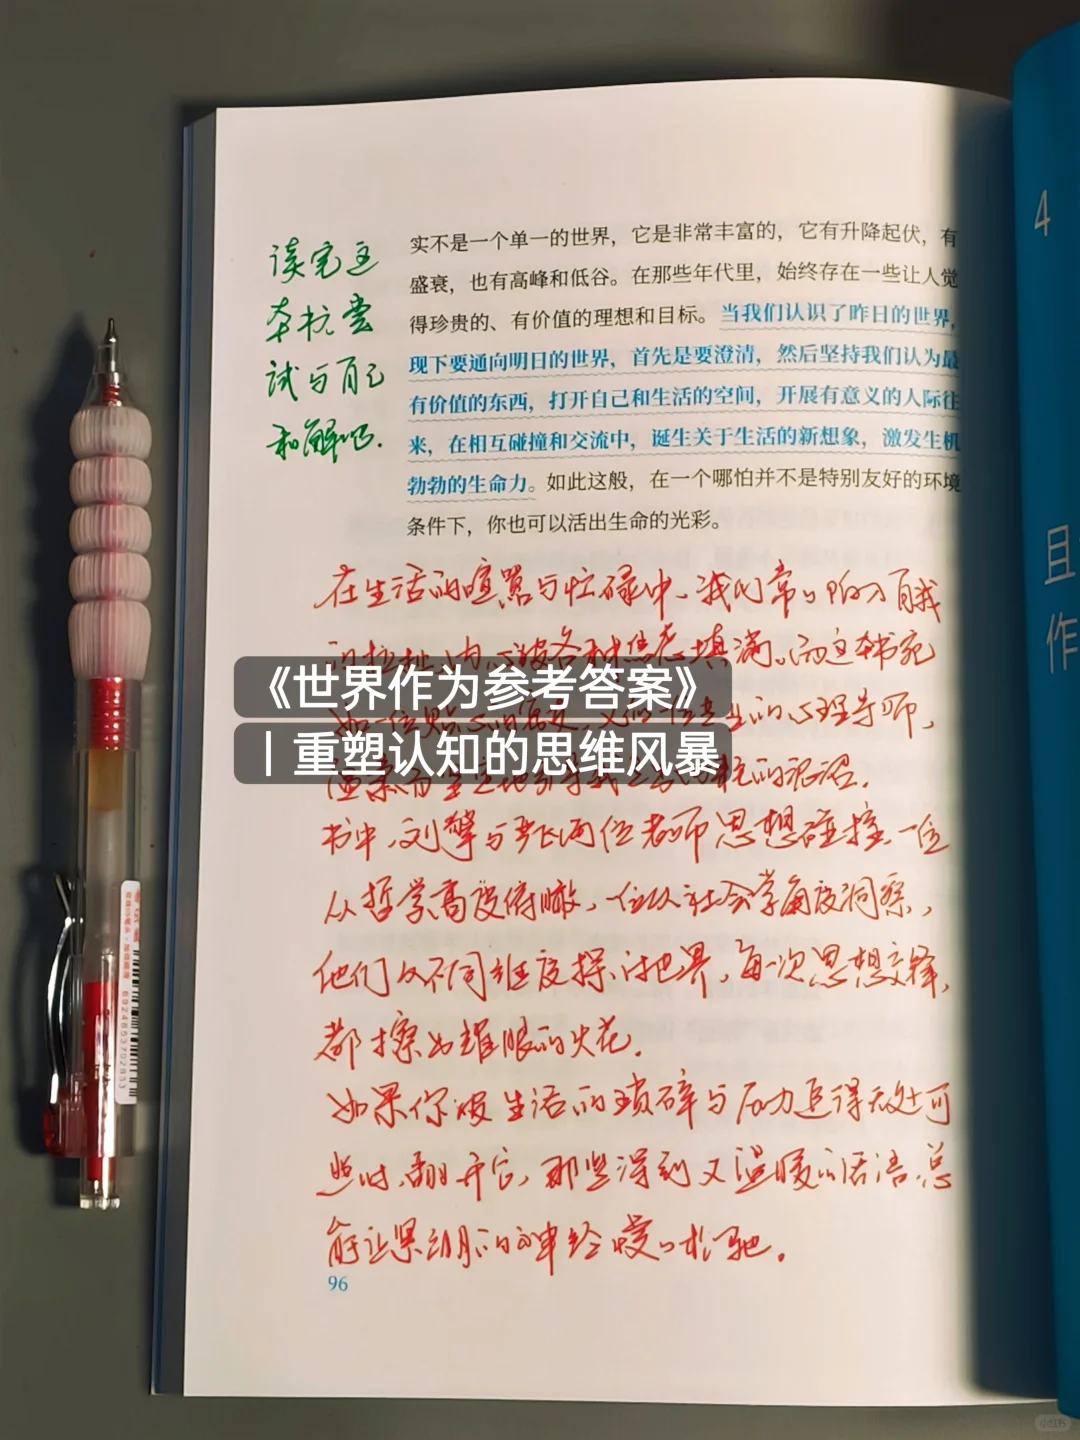 读完这
本书尝
试与自己
和解吧.
实不是一个单一的世界，它是非常丰富的，它有升降起伏，有
盛衰，也有高峰和低谷。在那些年代里，始终存在一些让人觉
得珍贵的、有价值的理想和目标。当我们认识了昨日的世界，
现下要通向明日的世界，首先是要澄清，然后坚持我们认为最
有价值的东西，打开自己和生活的空间，开展有意义的人际往
来，在相互碰撞和交流中，诞生关于生活的新想象，激发生机
勃勃的生命力。如此这般，在一个哪怕并不是特别友好的环境
条件下，你也可以活出生命的光彩。
在生活的喧嚣与忙碌中、我们常常陷入自我
的拉扯，内心被各种焦虑填满。而这本书宛
《世界作为参考答案》
的心理导师，
丨重塑认知的思维风暴
书中，刘擎与严飞两位老师思想碰撞、一位
从哲学高度俯瞰，一位从社会学角度洞察，
他们从不同维度探讨世界，每一次思想交锋，
都擦出耀眼的火花.
如果你被生活的琐碎与压力追得无处可
逃时，翻开它，那些深刻又温暖的话语，总
能让紧绷的神经慢慢松弛。
96
4
且
作
6924853702853
小红书